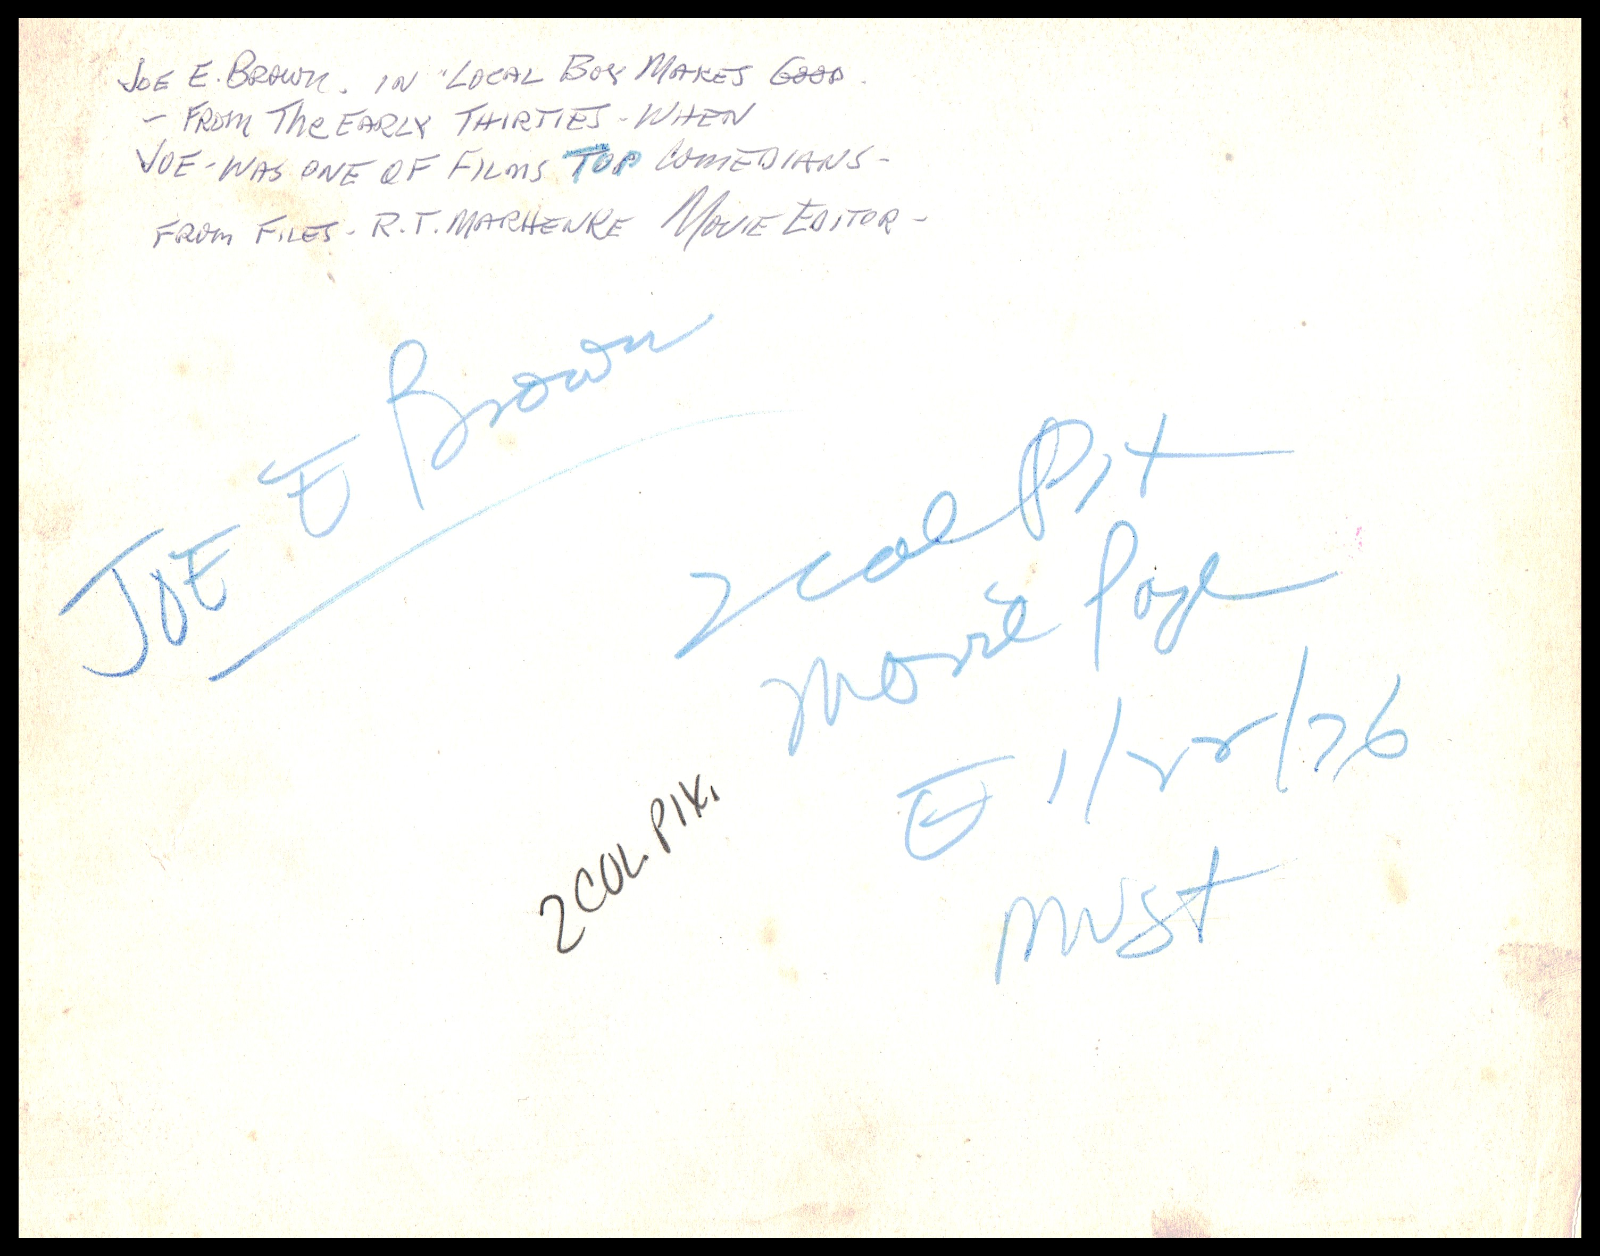 JOE E. BROWN. IN "LOCAL BOY MAKES GOOD.
- FROM The EARLY THIRTIES - WHEN
JOE - WAS ONE OF FILMS TOP COMEDIANS -
FROM FILES - R.T. MARHENKE MOVIE EDITOR -
JOE E Brown
2 Col Pix
Movie Page
E 1/22/76
MUST
2 COL. PIX.